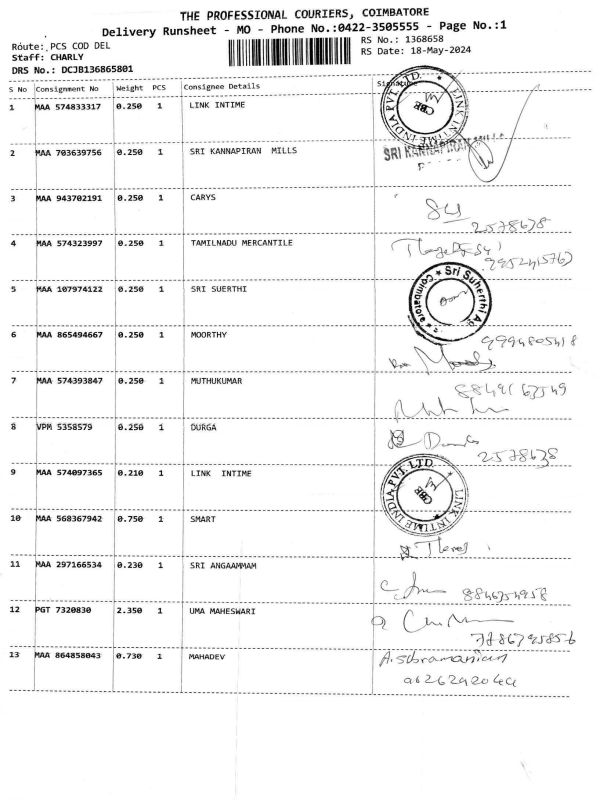 THE PROFESSIONAL COURIERS, COIMBATORE
Delivery Runsheet - MO - Phone No.:0422-3505555 - Page No.:1
Route: PCS COD DEL
RS No.: 1368658
Staff: CHARLY
RS Date: 18-May-2024
DRS No.: DCJB136865801
S No Consignment No Weight PCS Consignee Details Signature
1 MAA 574833317 0.250 1 LINK INTIME
LINK INTIME INDIA PVT. LTD. CBE
2 MAA 703639756 0.250 1 SRI KANNAPIRAN MILLS
SRI KANNAPIRAN MILLS
3 MAA 943702191 0.250 1 CARYS
2578638
4 MAA 574323997 0.250 1 TAMILNADU MERCANTILE
5 MAA 107974122 0.250 1 SRI SUERTHI
Sri Suherthi Ag Coimbatore
6 MAA 865494667 0.250 1 MOORTHY
9994805418
7 MAA 574393847 0.250 1 MUTHUKUMAR
8849163549
8 VPM 5358579 0.250 1 DURGA
2578638
9 MAA 574097365 0.210 1 LINK INTIME
LINK INTIME INDIA PVT. LTD. CBE
10 MAA 568367942 0.750 1 SMART
11 MAA 297166534 0.230 1 SRI ANGAAMMAM
8846754958
12 PGT 7320830 2.350 1 UMA MAHESWARI
13 MAA 864858043 0.730 1 MAHADEV
A. Subramanian